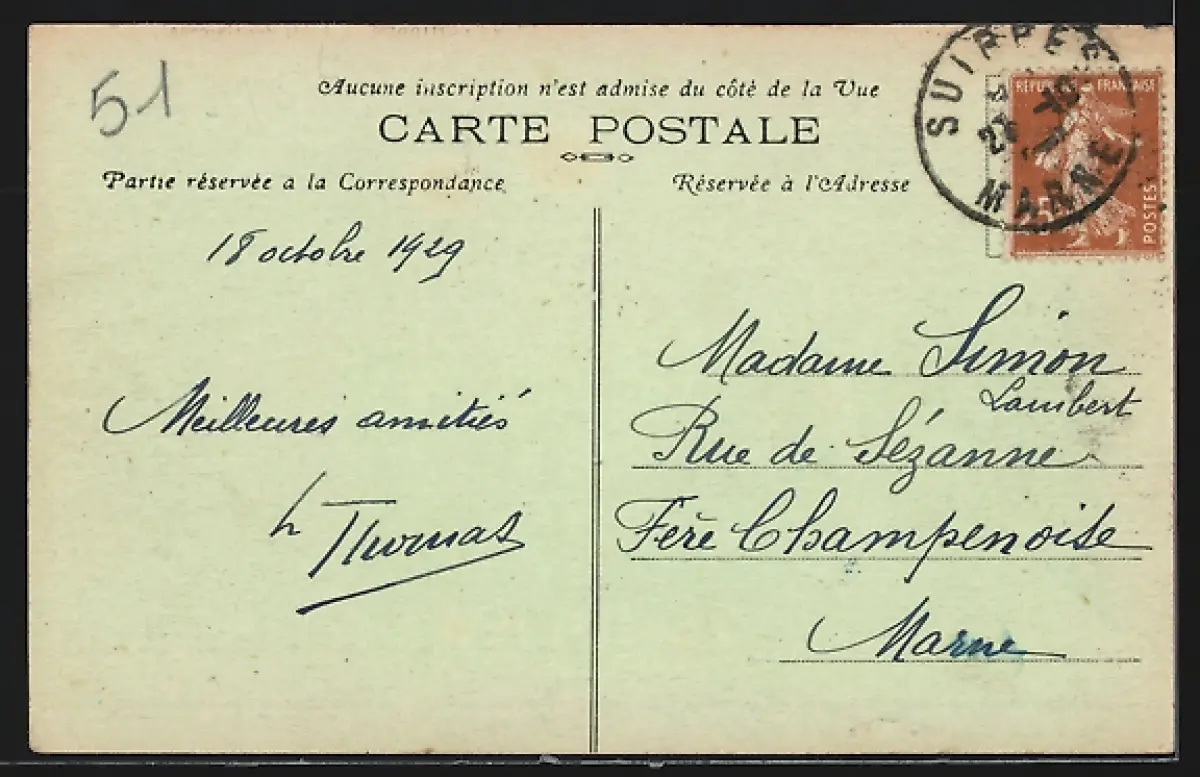 51
Aucune inscription n'est admise du côté de la Vue
CARTE POSTALE
Partie réservée a la Correspondance
Réservée à l'Adresse
SUIPPES
MARNE
RÉPUBLIQUE FRANÇAISE
POSTES
18 octobre 1929
Meilleures amitiés
Thomas
Madame Simon
Lambert
Rue de Sézanne
Fère Champenoise
Marne